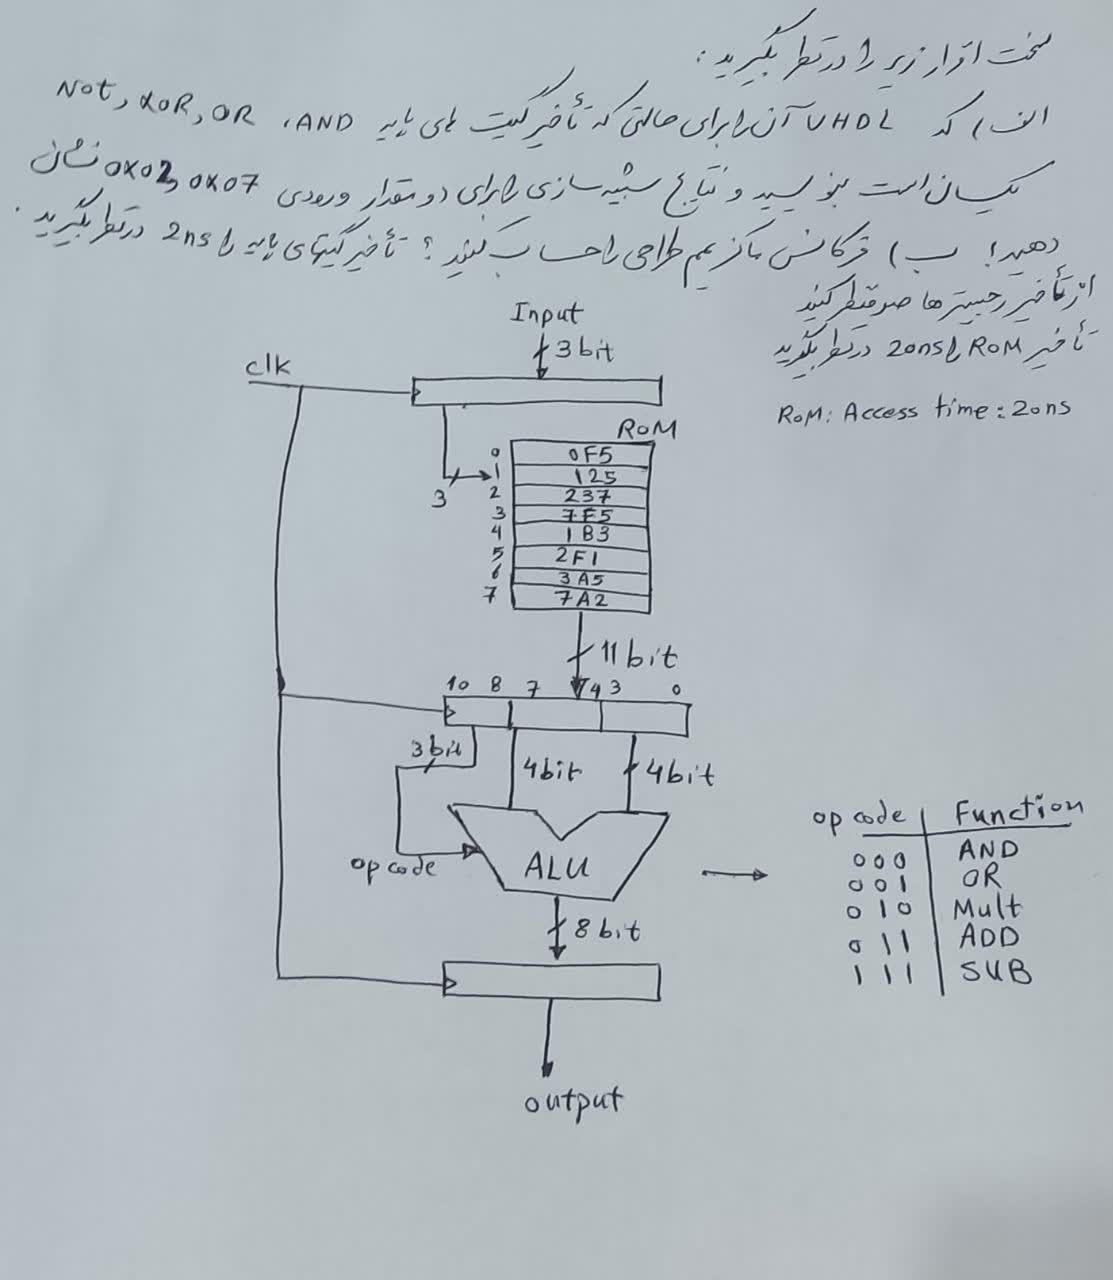 سخت افزار زیر را در نظر بگیرید:
الف) کد VHDL آن را برای حالتی که تأخیر گیت های پایه AND، OR, XOR, Not
یکسان است بنویسید و نتایج شبیه سازی را برای دو مقدار ورودی 0x07 و 0x02 نشان
دهید! ب) فرکانس ماکزیمم طراحی را حساب کنید؟ تأخیر گیتهای پایه را 2ns در نظر بگیرید.
از تأخیر رجیسترها صرفنظر کنید
تأخیر ROM را 20ns در نظر بگیرید
RoM: Access time: 20ns
Input
3 bit
clk
RoM
0 0F5
1 125
2 237
3 7F5
4 1B3
5 2F1
6 3A5
7 7A2
3
11 bit
10 8 7 4 3 0
3 bit
4 bit
4 bit
op code
ALU
8 bit
output
op code Function
000 AND
001 OR
010 Mult
011 ADD
111 SUB